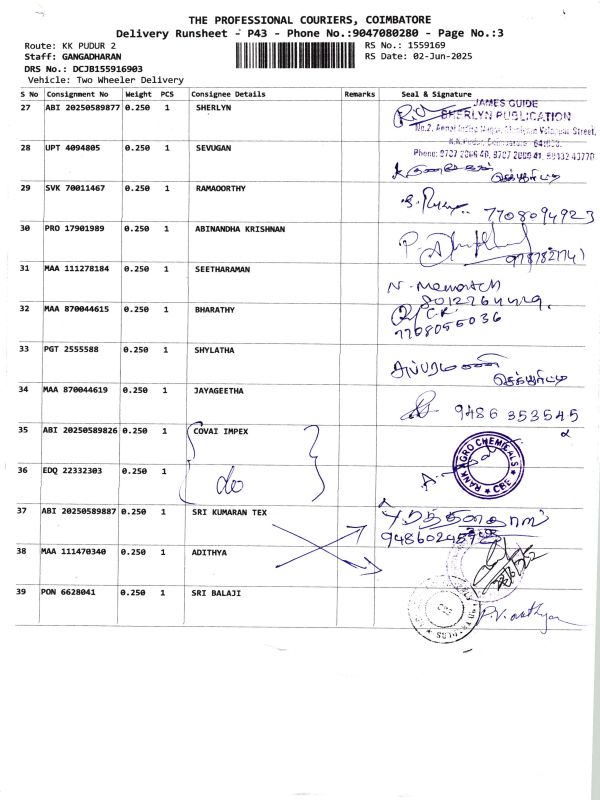 THE PROFESSIONAL COURIERS, COIMBATORE
Delivery Runsheet - P43 - Phone No.:9047080280 - Page No.:3
Route: KK PUDUR 2
RS No.: 1559169
Staff: GANGADHARAN
RS Date: 02-Jun-2025
DRS No.: DCJB155916903
Vehicle: Two Wheeler Delivery
S No Consignment No Weight PCS Consignee Details Remarks Seal & Signature
27 ABI 20250589877 0.250 1 SHERLYN
JAMES GUIDE
SHERLYN PUBLICATION
28 UPT 4094805 0.250 1 SEVUGAN
29 SVK 70011467 0.250 1 RAMAOORTHY
7708094923
30 PRO 17901989 0.250 1 ABINANDHA KRISHNAN
31 MAA 111278184 0.250 1 SEETHARAMAN
32 MAA 870044615 0.250 1 BHARATHY
7708055036
33 PGT 2555588 0.250 1 SHYLATHA
34 MAA 870044619 0.250 1 JAYAGEETHA
9486 353545
35 ABI 20250589826 0.250 1 COVAI IMPEX
RANK AGRO CHEMICALS
CBE
36 EDQ 22332303 0.250 1
do
37 ABI 20250589887 0.250 1 SRI KUMARAN TEX
38 MAA 111470340 0.250 1 ADITHYA
39 PON 6628041 0.250 1 SRI BALAJI
CBE